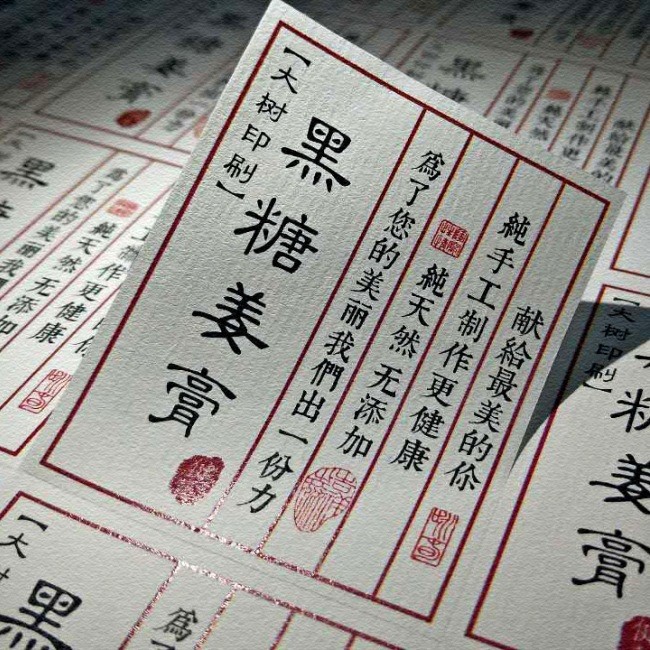 献給最美的你
純手工制作更健康
純天然 无添加
為了您的美丽我們出一份力
黑糖姜膏
【大树印刷】